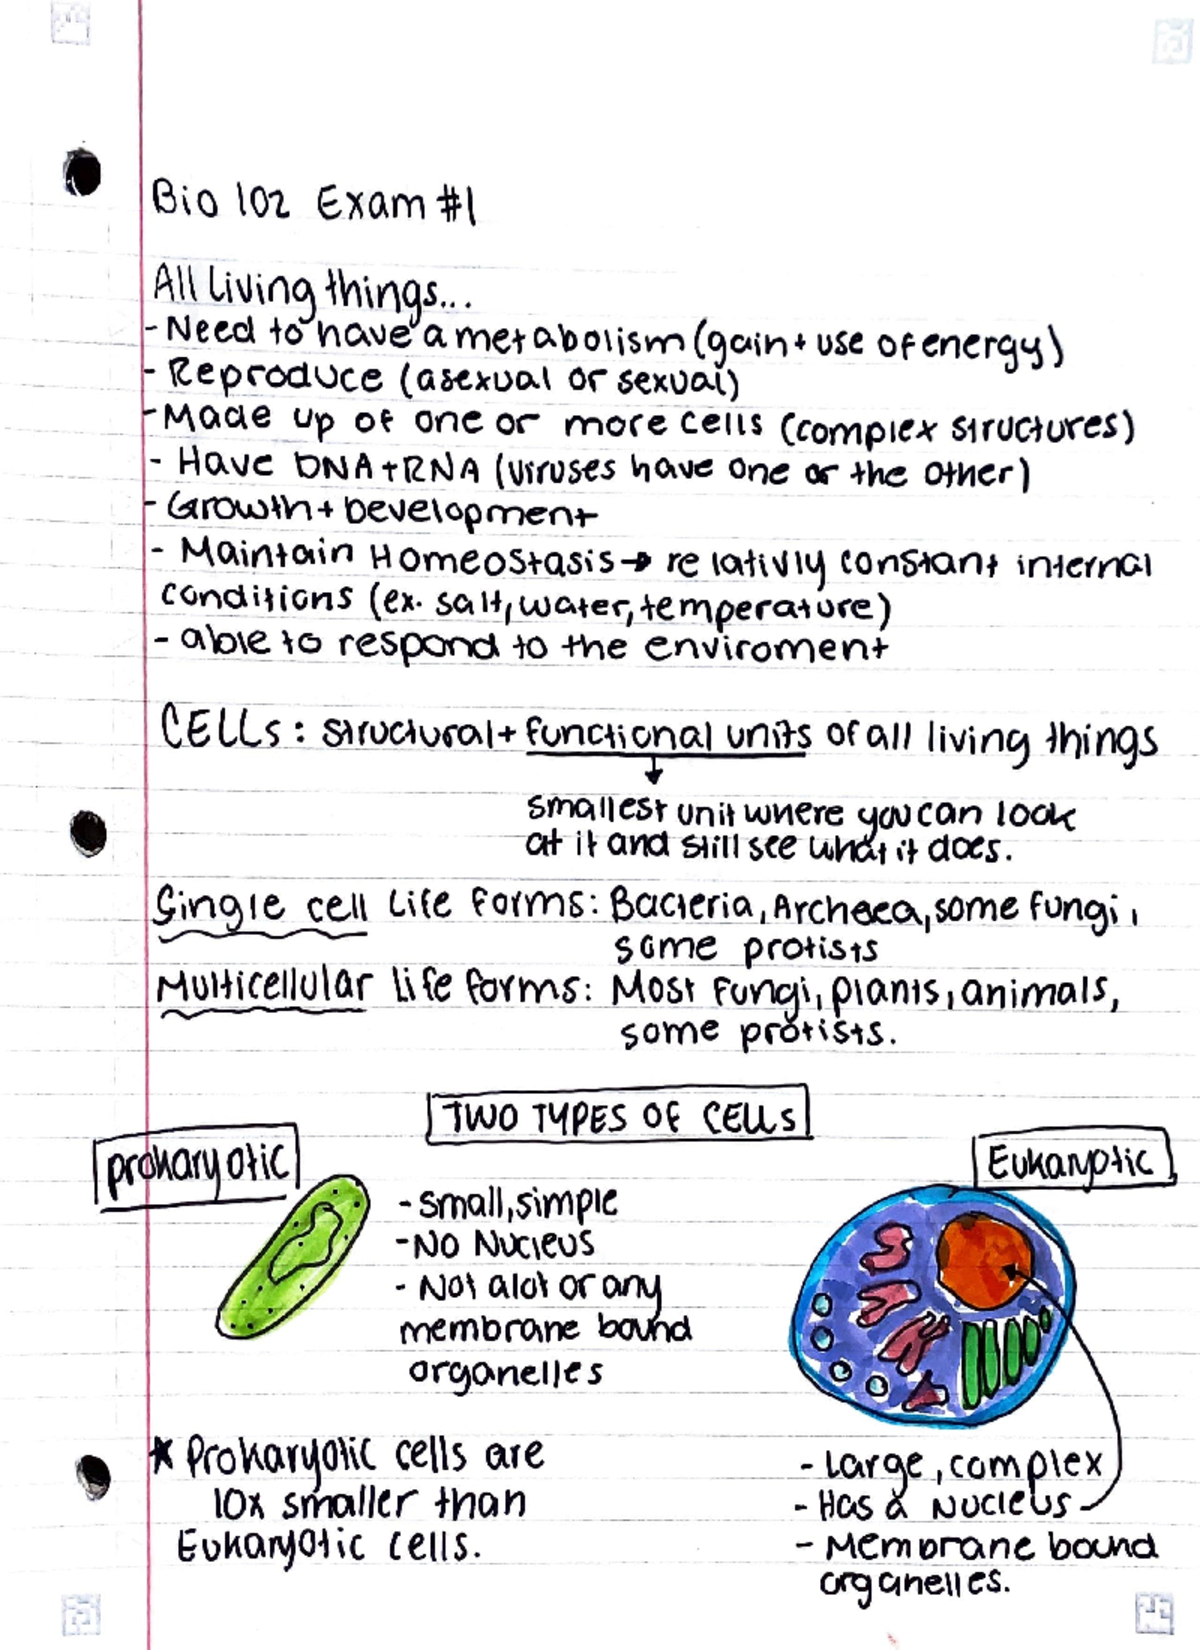 Bio 102 Exam #1
All living things...
- Need to have a metabolism (gain + use of energy)
- Reproduce (asexual or sexual)
- Made up of one or more cells (complex structures)
- Have DNA + RNA (viruses have one or the other)
- Growth + Development
- Maintain Homeostasis → relativly constant internal
conditions (ex. salt, water, temperature)
- able to respond to the enviroment
CELLS: structural + functional units of all living things
smallest unit where you can look
at it and still see what it does.
Single cell life forms: Bacteria, Archeea, some fungi,
some protists
Multicellular life forms: Most Fungi, plants, animals,
some protists.
TWO TYPES OF CELLS
prokaryotic
Eukaryotic
- small, simple
- No Nucleus
- Not alot or any
membrane bound
organelles
★ Prokaryotic cells are
10x smaller than
Eukaryotic cells.
- Large, complex
- Has a Nucleus
- Membrane bound
organelles.